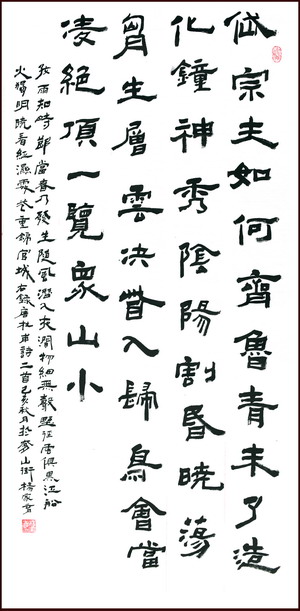 岱宗夫如何齊魯青未了造
化鐘神秀陰陽割昏曉蕩
胷生層雲決眥入歸鳥會當
凌絕頂一覽眾山小
好雨知時節當春乃發生隨風潛入夜潤物細無聲野徑雲俱黑江船
火獨明曉看紅濕處花重錦官城右錄唐杜甫詩二首己亥秋月於山街楊家